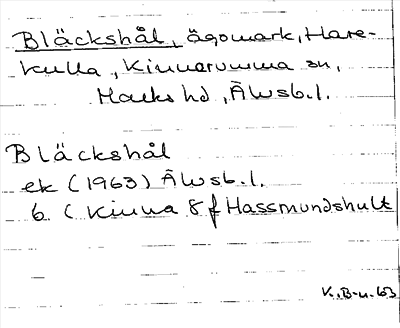 Bläckshål, ägomark, Hare-
kulla, Kinnarumma sn,
Marks hd, Älvsb. l.
Bläckshål
ek (1963) Älvsb. l.
6 C Kinna 8 f Hassmundshult
K. B-n. 63